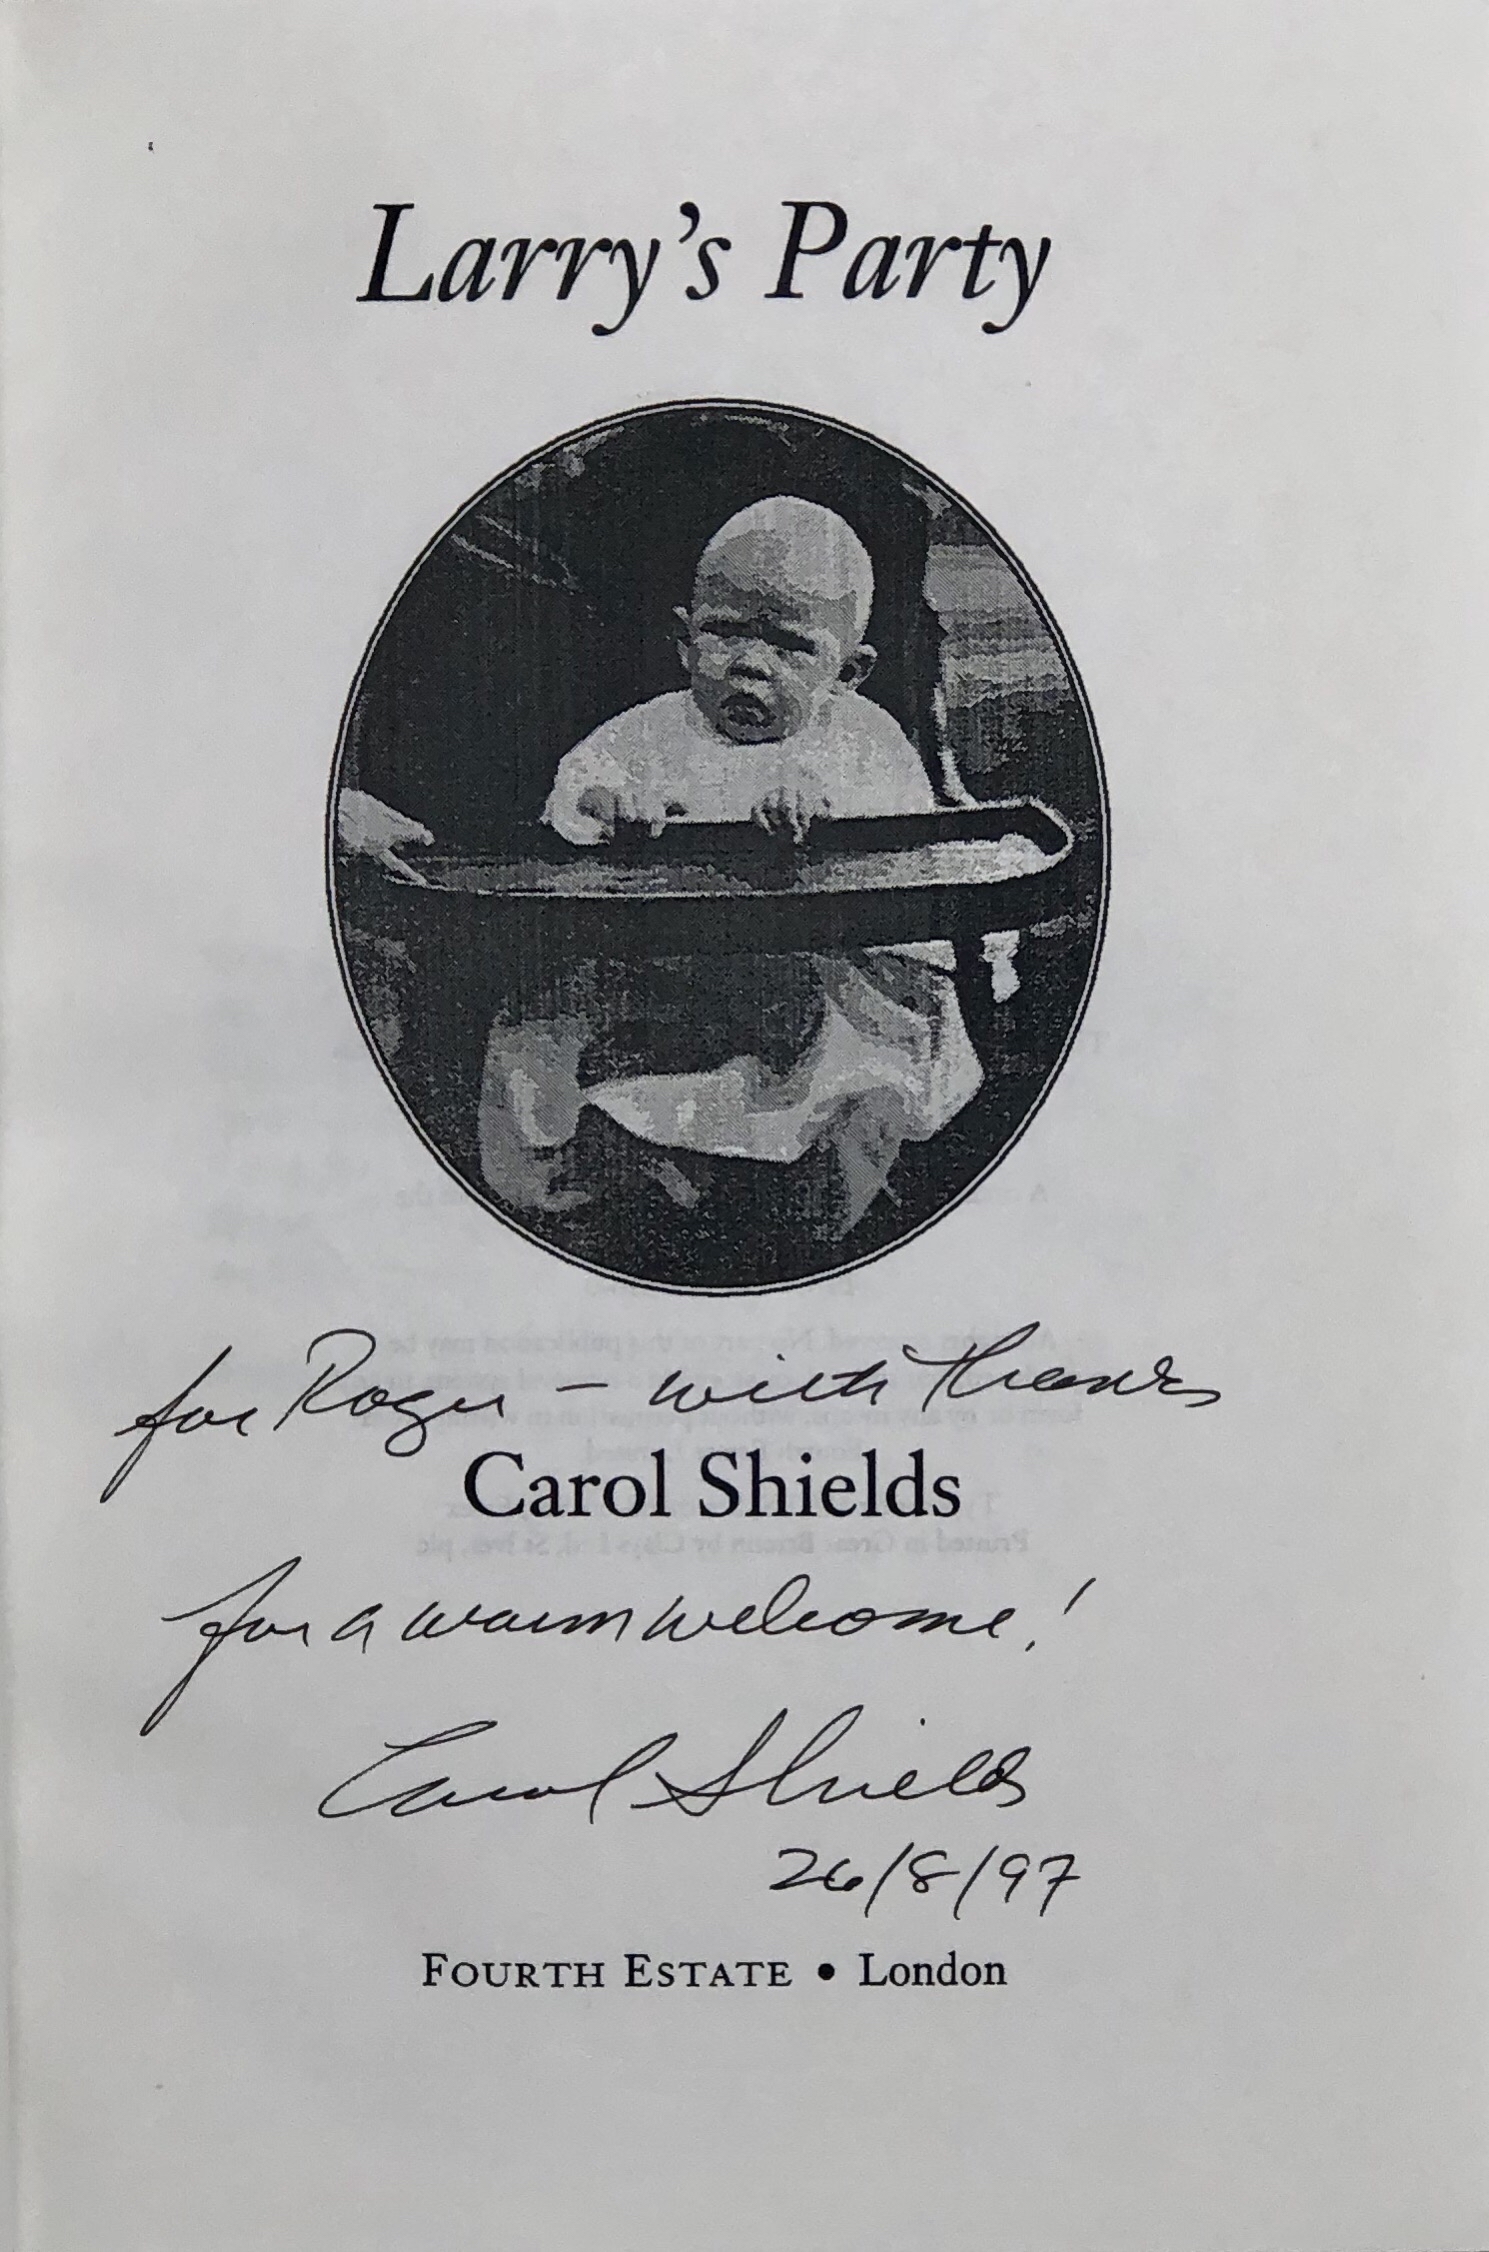 Larry's Party
for Roger – with thanks
Carol Shields
for a warm welcome!
Carol Shields
26/8/97
FOURTH ESTATE • London